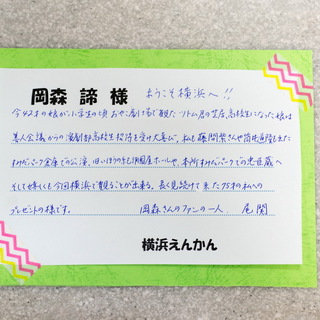 岡森 諦 様 ようこそ横浜へ!!
今42才の娘が小学生の頃 おやこ劇場で観た リトム君の芝居、高校生になった娘は
善人会議からの演劇部高校生招待を受け大喜び、私も藤間紫さんや
すみだパーク倉庫での公演、旧いほうの紀伊國屋ホールや、本所すみだパークでの忠臣蔵へ
そして嬉しくも今回横浜で観ることが出来る。長く見続けて来た75才の私への
プレゼントの様です。 岡森さんのファンの一人、尾関
横浜えんかん